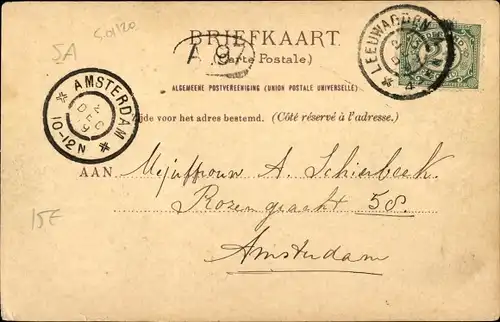 5A
50/20
BRIEFKAART
(Carte Postale)
A 9
ALGEMEENE POSTVEREENIGING (UNION POSTALE UNIVERSELLE)
LEEUWARDEN
4
AMSTERDAM
2
DEC
9
10-12N
ijde voor het adres bestemd. (Côté réservé à l'adresse.)
AAN Mejuffrouw A. Schierbeek
Rozengracht 58.
Amsterdam
15E